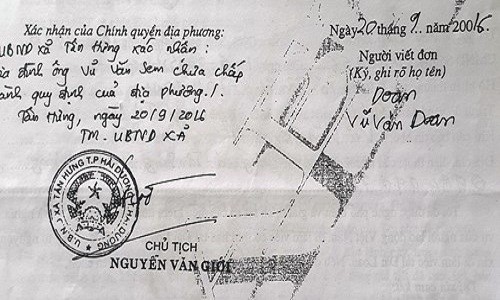 Xác nhận của Chính quyền địa phương:
UBND xã Tân Hưng xác nhận:
đình ông Vũ Văn Sem chưa chấp
hành quy định của địa phương./.
Tân Hưng, ngày 20/9/2016
TM. UBND XÃ
U.B.N.D XÃ TÂN HƯNG T.P HẢI DƯƠNG T.HẢI DƯƠNG
CHỦ TỊCH
NGUYỄN VĂN GIỚI
Ngày 20 tháng 9 năm 2006
Người viết đơn
(Ký, ghi rõ họ tên)
Doan
Vũ Văn Doan